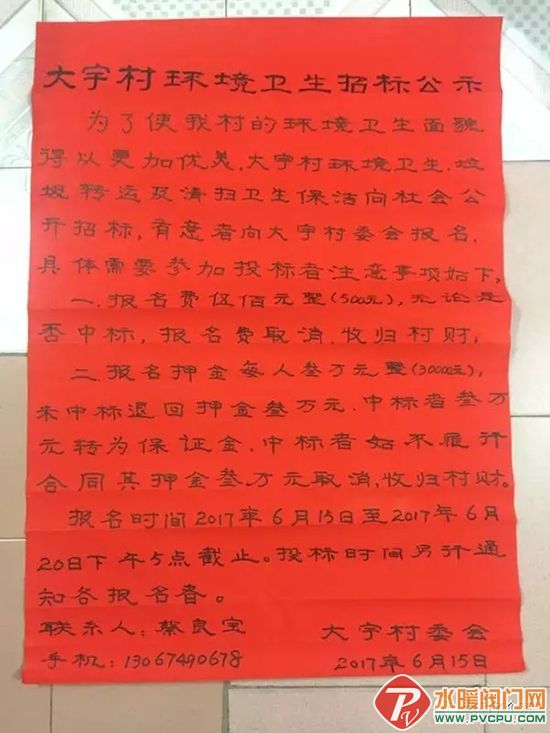 大宇村环境卫生招标公示
为了使我村的环境卫生面貌
得以更加优美,大宇村环境卫生.垃
圾转运及清扫卫生保洁向社会公
开招标,有意者向大宇村委会报名,
具体需要参加投标者注意事项如下,
一.报名费伍佰元整(500元),无论是
否中标,报名费取消,收归村财,
二.报名押金每人叁万元整(30000元),
未中标退回押金叁万元.中标者叁万
元转为保证金,中标者如不履行
合同其押金叁万元取消,收归村财。
报名时间2017年6月15日至2017年6月
20日下午5点截止。投标时间另行通
知各报名者。
联系人:蔡良宝 大宇村委会
手机:13067490678 2017年6月15日
水暖阀门网
www.PVCPU.com